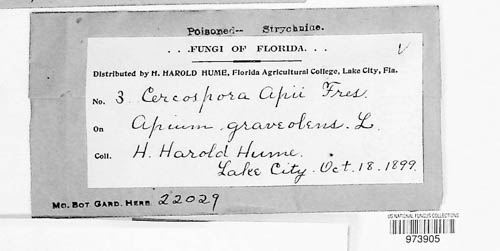 Poisoned-- Strychnine.
. . .FUNGI OF FLORIDA. . .
Distributed by H. HAROLD HUME, Florida Agricultural College, Lake City, Fla.
No. 3 Cercospora Apii Fres.
On Apium graveolens. L.
Coll. H. Harold Hume.
Lake City. Oct. 18. 1899.
MO. BOT. GARD. HERB. 22029
US NATIONAL FUNGUS COLLECTIONS
973905